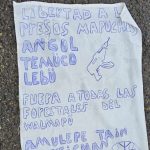 LIBERTAD A L
PRESOS MAPUCHE
ANGOL
TEMUCO
LEBU
FUERA A TODAS LAS
FORESTALES DEL
WALMAPU
AMULEPE TAIN